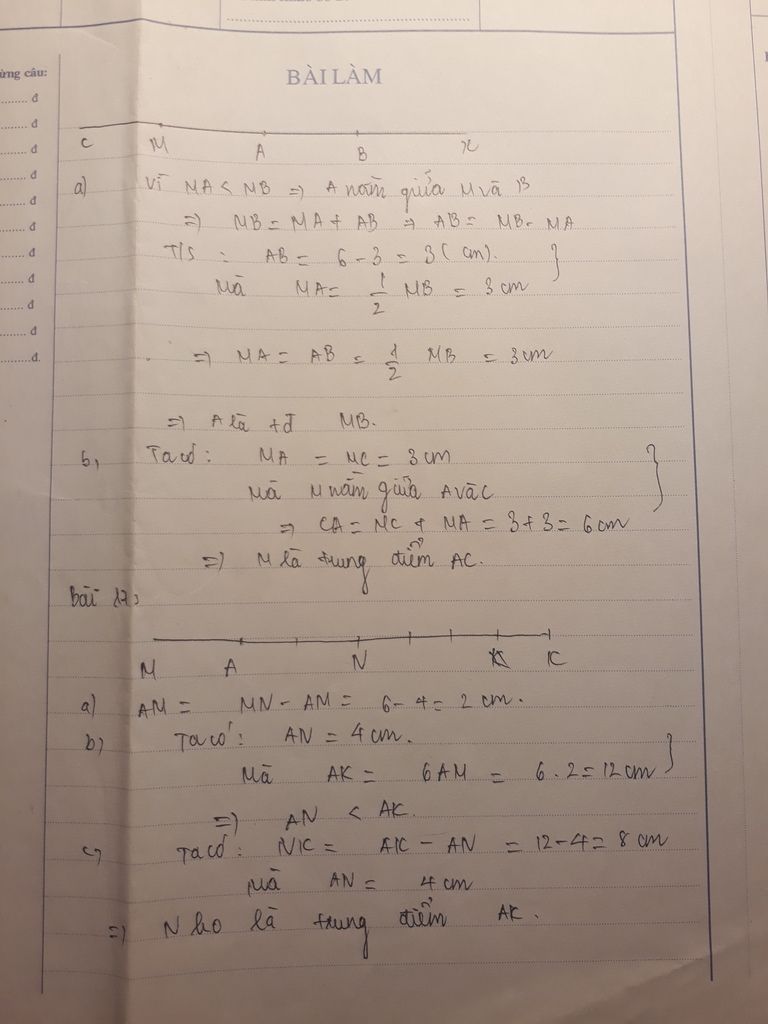 ừng câu:
BÀI LÀM
........ đ
........ đ
........ đ
........ đ
........ đ
........ đ
........ đ
........ đ
........ đ
........ đ
........đ.
C M A B x
a) Vì MA < MB => A nằm giữa M và B
=> MB = MA + AB => AB = MB - MA
T/S : AB = 6 - 3 = 3 (cm). }
Mà MA = 1/2 MB = 3 cm
=> MA = AB = 1/2 MB = 3 cm
=> A là tđ MB.
b, Ta có: MA = MC = 3 cm }
Mà M nằm giữa A và C
=> CA = MC + MA = 3 + 3 = 6 cm
=> M là trung điểm AC.
Bài 17:
M A N K
a) AM = MN - AM = 6 - 4 = 2 cm.
b) Ta có: AN = 4 cm. }
Mà AK = 6AM = 6 . 2 = 12 cm
=> AN < AK.
c, Ta có: NK = AK - AN = 12 - 4 = 8 cm
Mà AN = 4 cm
=> N ko là trung điểm AK.